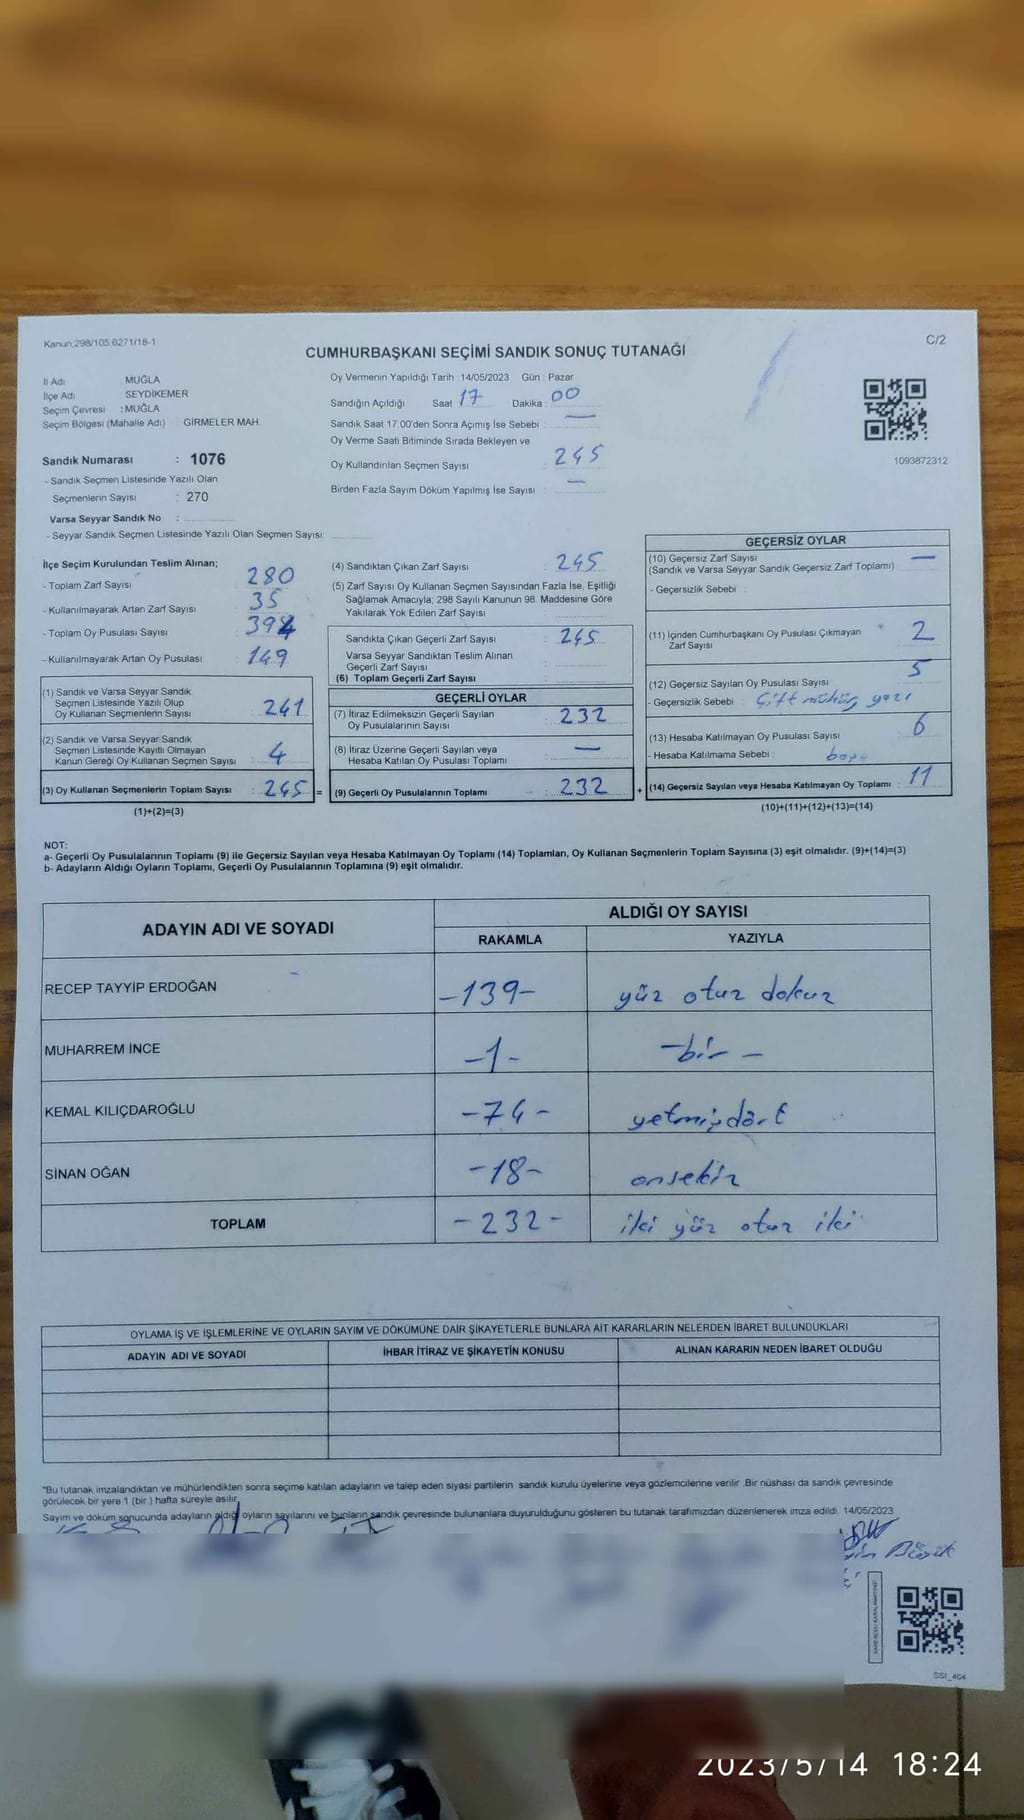 Kanun;298/105,6271/18-1
C/2
CUMHURBAŞKANI SEÇİMİ SANDIK SONUÇ TUTANAĞI
İl Adı MUĞLA
İlçe Adı SEYDİKEMER
Seçim Çevresi : MUĞLA
Seçim Bölgesi (Mahalle Adı) : GİRMELER MAH.
Sandık Numarası : 1076
- Sandık Seçmen Listesinde Yazılı Olan
Seçmenlerin Sayısı : 270
Varsa Seyyar Sandık No :
- Seyyar Sandık Seçmen Listesinde Yazılı Olan Seçmen Sayısı:
Oy Vermenin Yapıldığı Tarih : 14/05/2023 Gün : Pazar
Sandığın Açıldığı Saat : 17 Dakika : 00
Sandık Saat 17.00'den Sonra Açımış İse Sebebi : —
Oy Verme Saati Bitiminde Sırada Bekleyen ve
Oy Kullandırılan Seçmen Sayısı : 245
Birden Fazla Sayım Döküm Yapılmış İse Sayısı : —
1093872312
İlçe Seçim Kurulundan Teslim Alınan;
- Toplam Zarf Sayısı : 280
- Kullanılmayarak Artan Zarf Sayısı : 35
- Toplam Oy Pusulası Sayısı : 394
- Kullanılmayarak Artan Oy Pusulası : 149
(1) Sandık ve Varsa Seyyar Sandık
Seçmen Listesinde Yazılı Olup
Oy Kullanan Seçmenlerin Sayısı : 241
(2) Sandık ve Varsa Seyyar Sandık
Seçmen Listesinde Kayıtlı Olmayan
Kanun Gereği Oy Kullanan Seçmen Sayısı : 4
(3) Oy Kullanan Seçmenlerin Toplam Sayısı : 245 =
(1)+(2)=(3)
(4) Sandıktan Çıkan Zarf Sayısı : 245
(5) Zarf Sayısı Oy Kullanan Seçmen Sayısından Fazla İse, Eşitliği
Sağlamak Amacıyla; 298 Sayılı Kanunun 98. Maddesine Göre
Yakılarak Yok Edilen Zarf Sayısı :
Sandıkta Çıkan Geçerli Zarf Sayısı : 245
Varsa Seyyar Sandıktan Teslim Alınan
Geçerli Zarf Sayısı :
(6) Toplam Geçerli Zarf Sayısı :
GEÇERLİ OYLAR
(7) İtiraz Edilmeksizin Geçerli Sayılan
Oy Pusulalarının Sayısı : 232
(8) İtiraz Üzerine Geçerli Sayılan veya
Hesaba Katılan Oy Pusulası Toplamı : —
(9) Geçerli Oy Pusulalarının Toplamı : 232 +
GEÇERSİZ OYLAR
(10) Geçersiz Zarf Sayısı : —
(Sandık ve Varsa Seyyar Sandık Geçersiz Zarf Toplamı)
- Geçersizlik Sebebi :
(11) İçinden Cumhurbaşkanı Oy Pusulası Çıkmayan
Zarf Sayısı : 2
(12) Geçersiz Sayılan Oy Pusulası Sayısı : 5
- Geçersizlik Sebebi : Çift mühür, yazı
(13) Hesaba Katılmayan Oy Pusulası Sayısı : 6
- Hesaba Katılmama Sebebi :
(14) Geçersiz Sayılan veya Hesaba Katılmayan Oy Toplamı : 11
(10)+(11)+(12)+(13)=(14)
NOT:
a- Geçerli Oy Pusulalarının Toplamı (9) ile Geçersiz Sayılan veya Hesaba Katılmayan Oy Toplamı (14) Toplamları, Oy Kullanan Seçmenlerin Toplam Sayısına (3) eşit olmalıdır. (9)+(14)=(3)
b- Adayların Aldığı Oyların Toplamı, Geçerli Oy Pusulalarının Toplamına (9) eşit olmalıdır.
ADAYIN ADI VE SOYADI ALDIĞI OY SAYISI
RAKAMLA YAZIYLA
RECEP TAYYİP ERDOĞAN -139- yüz otuz dokuz
MUHARREM İNCE -1- -bir-
KEMAL KILIÇDAROĞLU -74- yetmişdört
SİNAN OĞAN -18- onsekiz
TOPLAM -232- iki yüz otuz iki
OYLAMA İŞ VE İŞLEMLERİNE VE OYLARIN SAYIM VE DÖKÜMÜNE DAİR ŞİKAYETLERLE BUNLARA AİT KARARLARIN NELERDEN İBARET BULUNDUKLARI
ADAYIN ADI VE SOYADI İHBAR İTİRAZ VE ŞİKAYETİN KONUSU ALINAN KARARIN NEDEN İBARET OLDUĞU
*Bu tutanak imzalandıktan ve mühürlendikten sonra seçime katılan adayların ve talep eden siyasi partilerin sandık kurulu üyelerine veya gözlemcilerine verilir. Bir nüshası da sandık çevresinde
görülecek bir yere 1 (bir ) hafta süreyle asılır.
Sayım ve döküm sonucunda adayların aldığı oyların sayılarını ve bunların sandık çevresinde bulunanlara duyurulduğunu gösteren bu tutanak tarafımızdan düzenlenerek imza edildi. 14/05/2023
SSI_404
2023/5/14 18:24